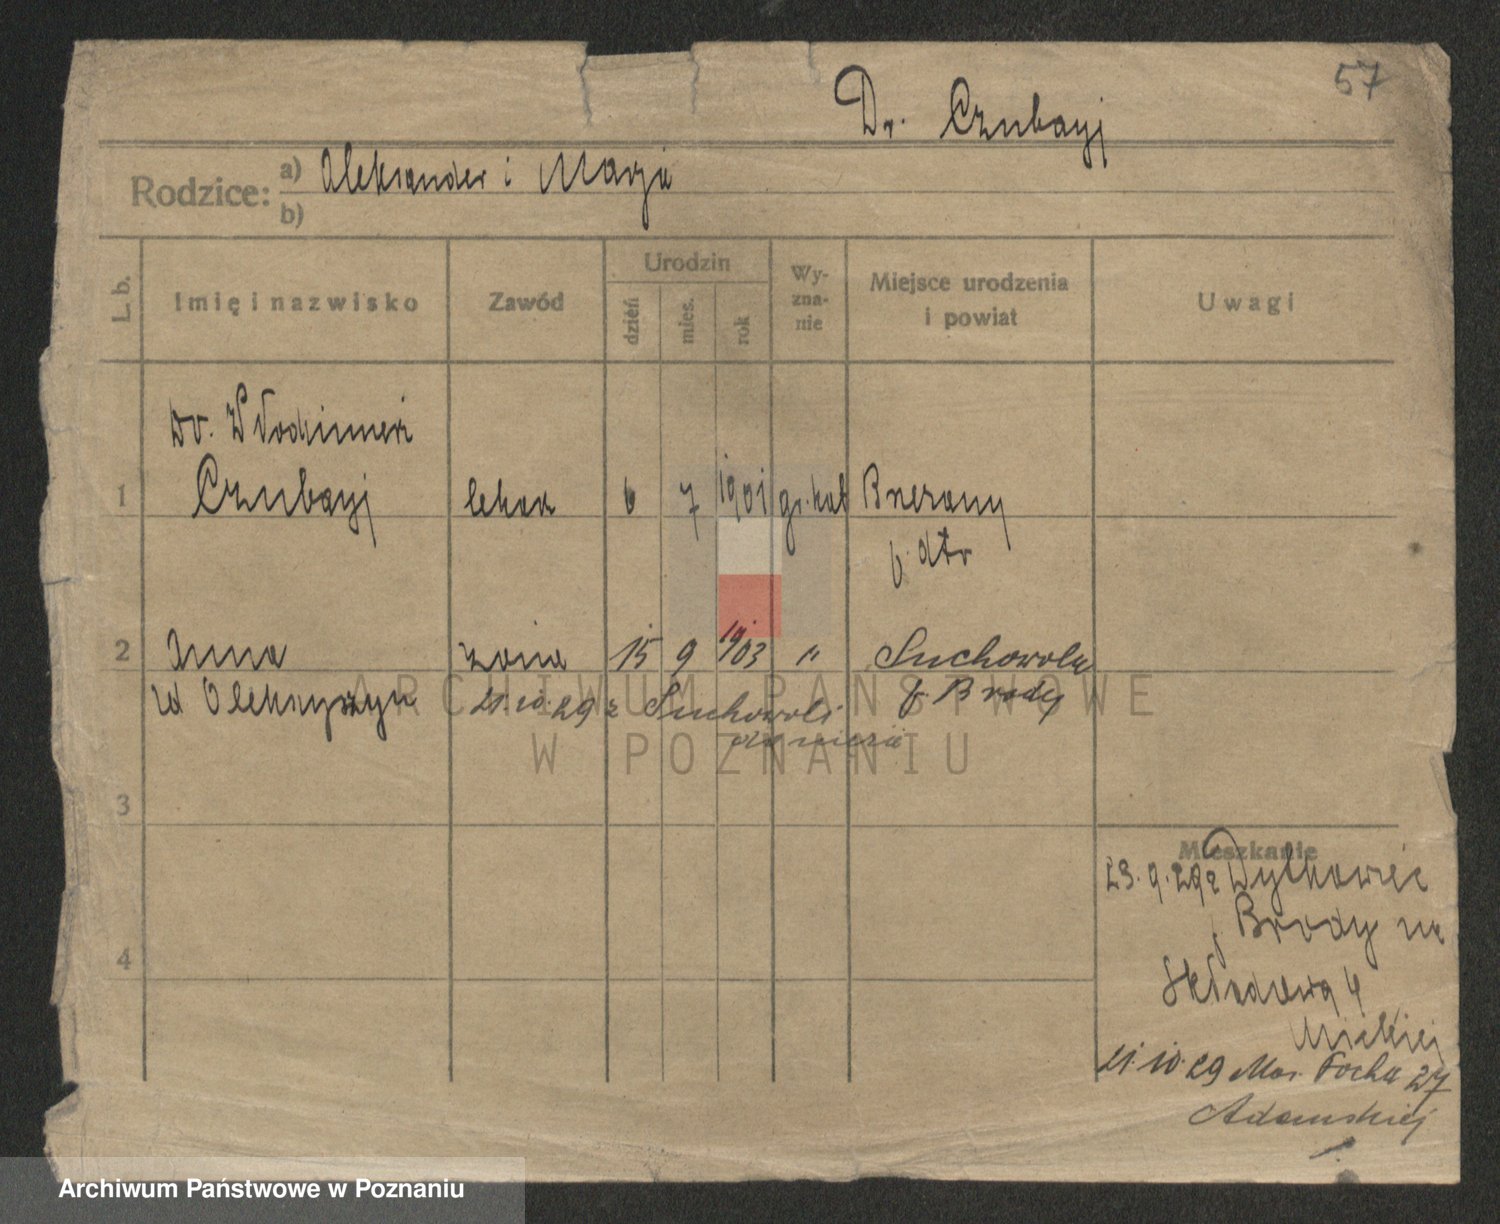 57
Dr. Czubayj
Rodzice: a) Aleksander i Marja
b)
L. b. Imię i nazwisko Zawód Urodzin dzień mies. rok Wy-zna-nie Miejsce urodzenia i powiat Uwagi
Dr. Włodzimierz
1 Czubayj lekarz 6 7 1901 gr. kat Brzezany
p. dtr
2 Anna żona 15 9 1903 " Suchowola
21.10.29 z Suchowoli p. Brody
3
Mieszkanie
23.9.29 z
Brody na
4
Składową 4
21.10.29 Mar. Focha 27
Adamskiej
ARCHIWUM PAŃSTWOWE
W POZNANIU
Archiwum Państwowe w Poznaniu